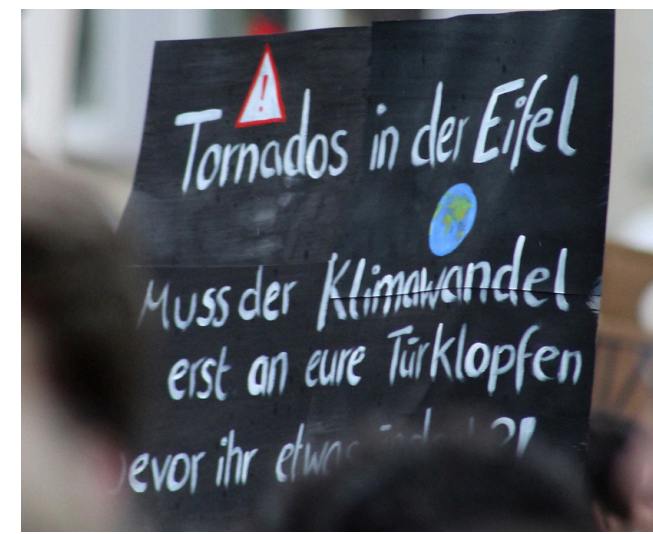 Tornados in der Eifel
Muss der Klimawandel
erst an eure Tür klopfen
bevor ihr etwas ändert?!